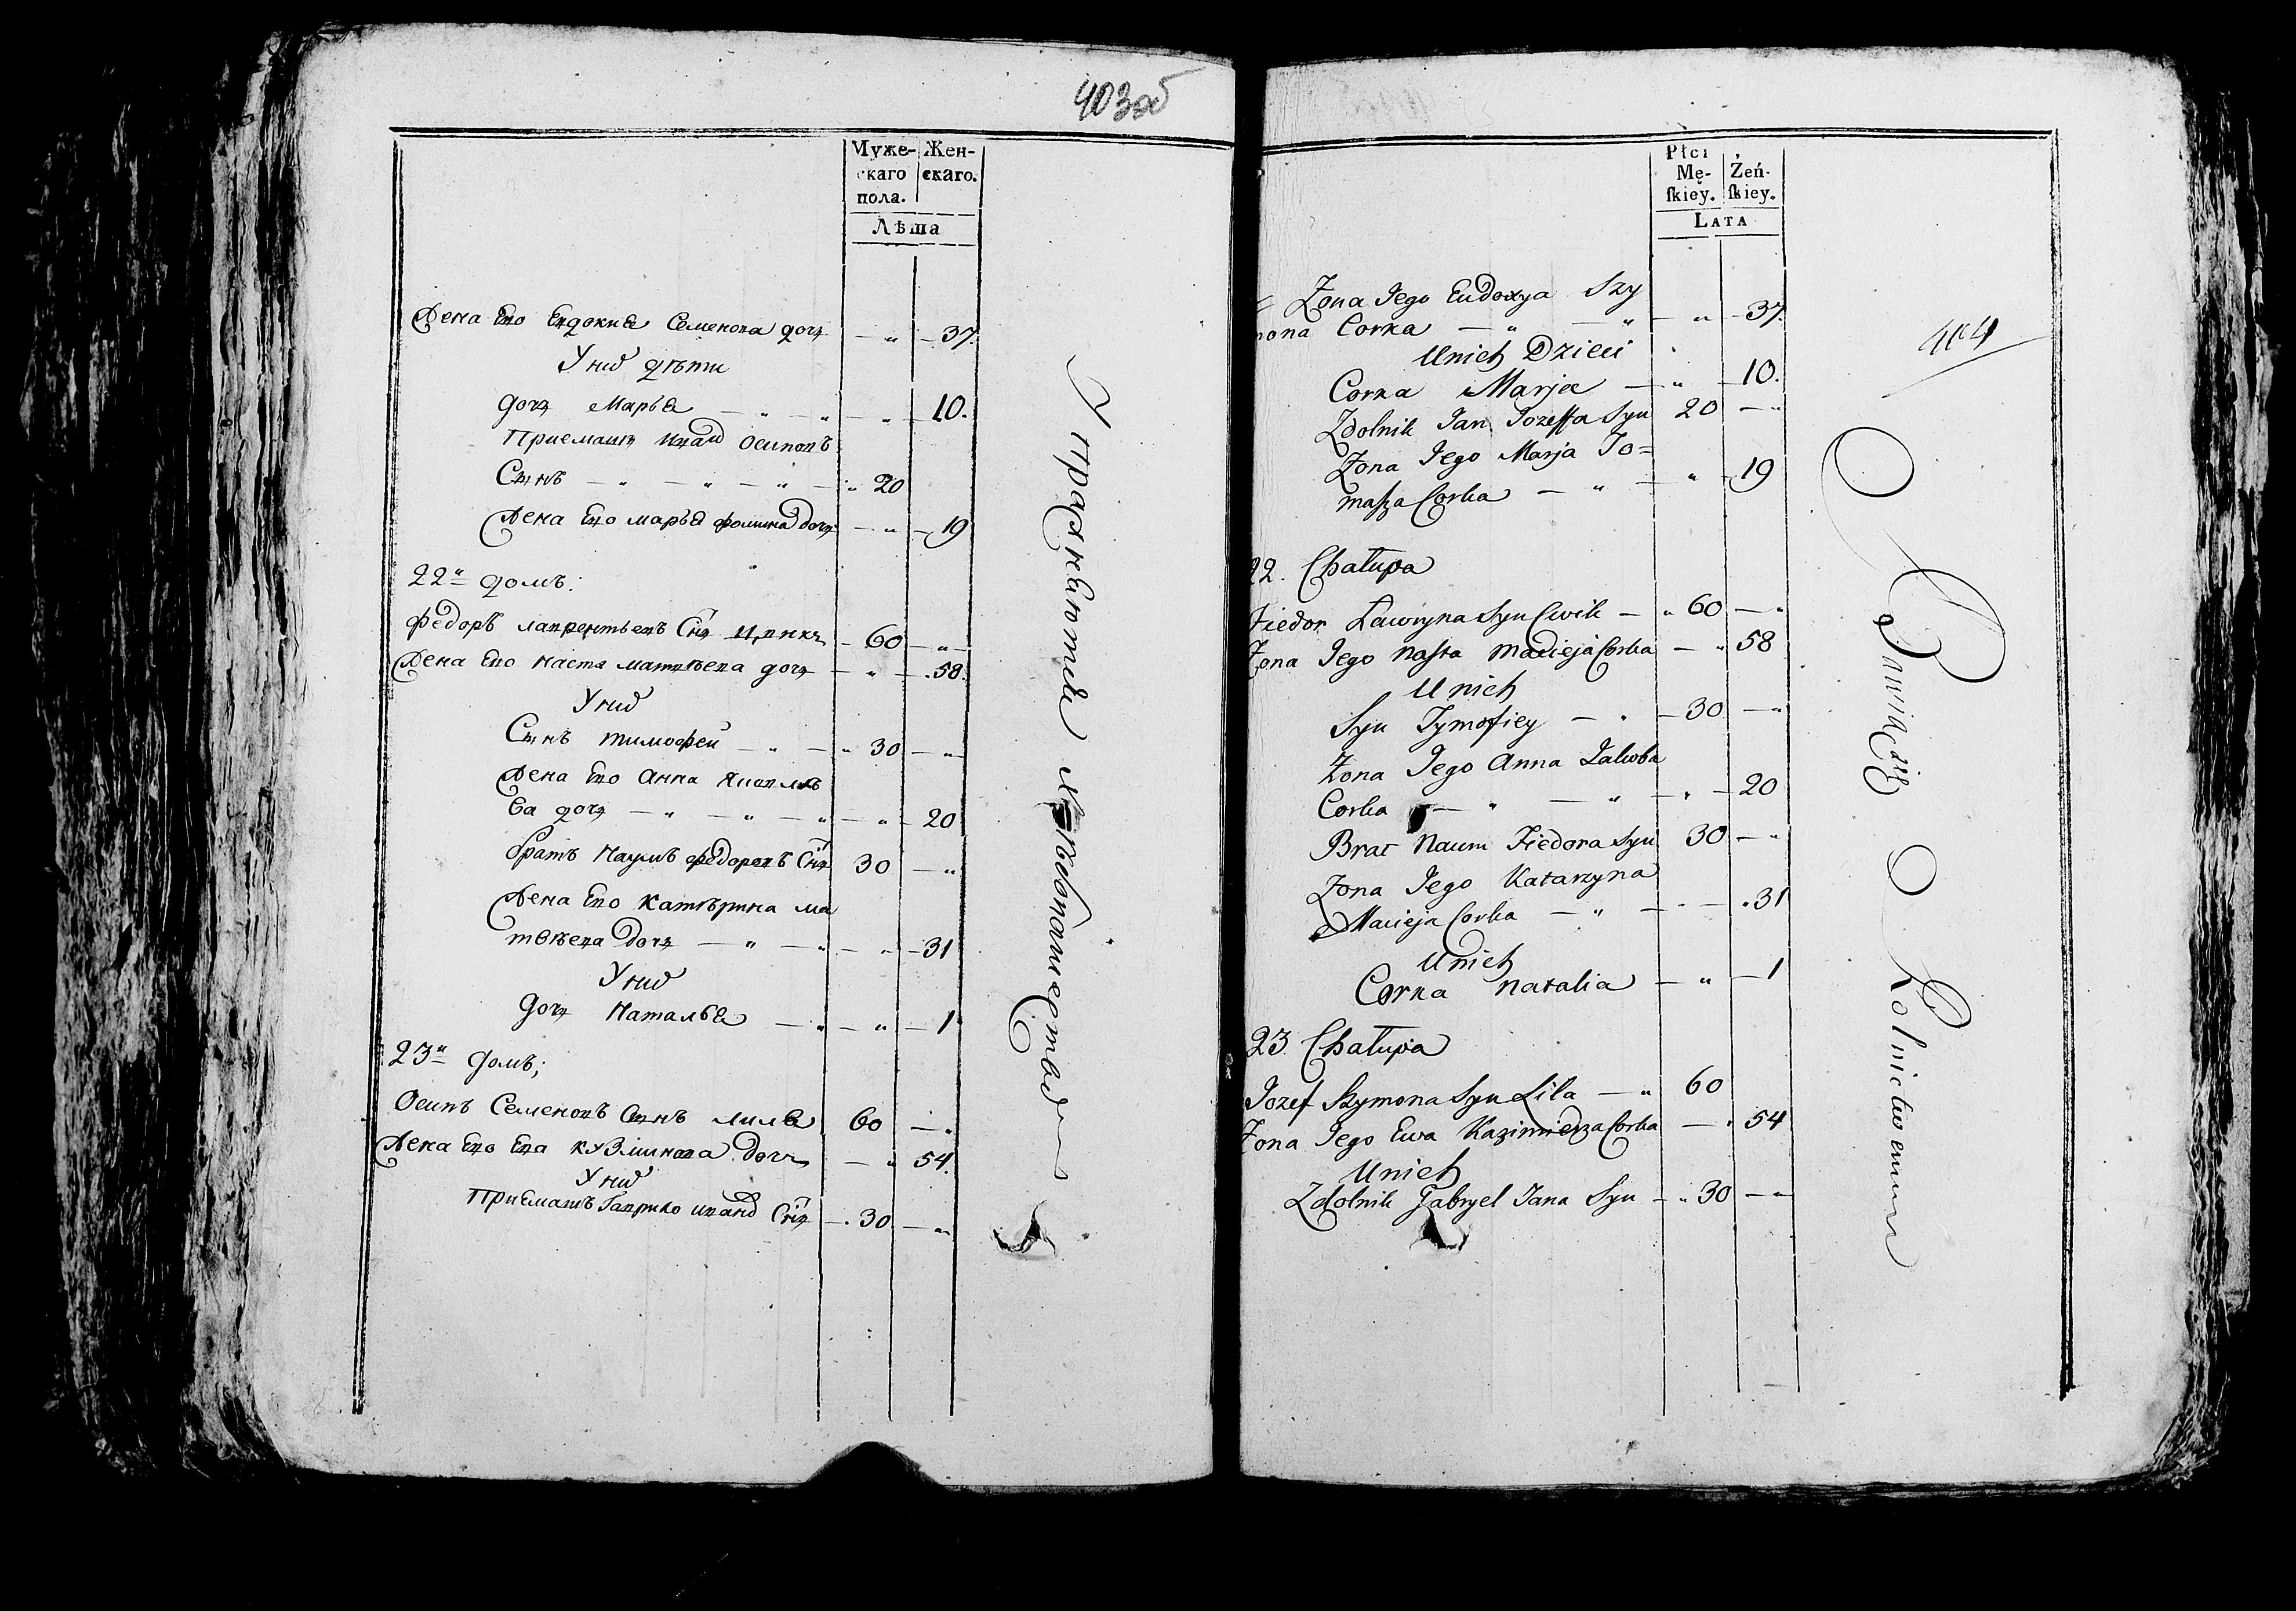 403об
Муже- Жен-
скаго скаго.
пола.
Лѣта
Жена Его Евдокиа Семенова дочь — „ — 37.
У них дѣти
дочь Марьа — „ — „ — „ — 10.
Приемашъ Иван Осиповъ
Сынъ — „ — „ — „ — „ 20
Жена Его марьа фомина дочь — „ — 19
22й домъ:
Федоръ лаврентьевъ Снъ Цвикъ — 60 — „ —
Жена Его наста матвѣева дочь — „ — 58.
У них
Сынъ тимофей — „ — „ 30 — „
Жена Его Анна Яковлѣ
ва дочь — „ — „ — „ — „ — 20
братъ Наумъ федоровъ Снъ 30 — „
Жена Его Катѣрина ма
твѣева дочь — „ — „ — „ — 31
У них
дочь Натальа — „ — „ — 1
23й домъ;
Осипъ Семеновъ Сынъ лила 60 — „
Жена Его Ева кузминова дочь — „ 54.
У них
Приемашъ Гаврило иванов Снъ — „ 30 — „
Упражняютца
Płci
Mę- Żeń-
ſkiey. ſkiey.
LATA
404
Zona Jego Eudoxya Szy
mona Corka — „ — „ — „ — 37.
Unich Dzieci
Corka Marja — „ — 10.
Zdolnik Jan Jozeffa Syn 20 — „
Zona Jego Marja To=
maſza Corka — „ — „ — 19
22. Chałupa
Fiedor Ławryna Syn Cwik — „ 60 — „
Zona Jego Naſta Macieja Corka — „ 58
Unich
Syn Tymofiey — „ — 30 — „
Zona Jego Anna Jakoba
Corka — „ — „ — „ — 20
Brat Naum Fiedora Syn 30 — „
Zona Jego Katarzyna
Macieja Corka — „ — „ — „ 31
Unich
Corka Natalia — „ — 1
23 Chałupa
Jozef Szymona Syn Liła — „ 60
Zona Jego Ewa Kazimierza Corka — „ 54
Unich
Zdolnik Gabryel Jana Syn — „ 30 — „
Bawią się Rolnictwem